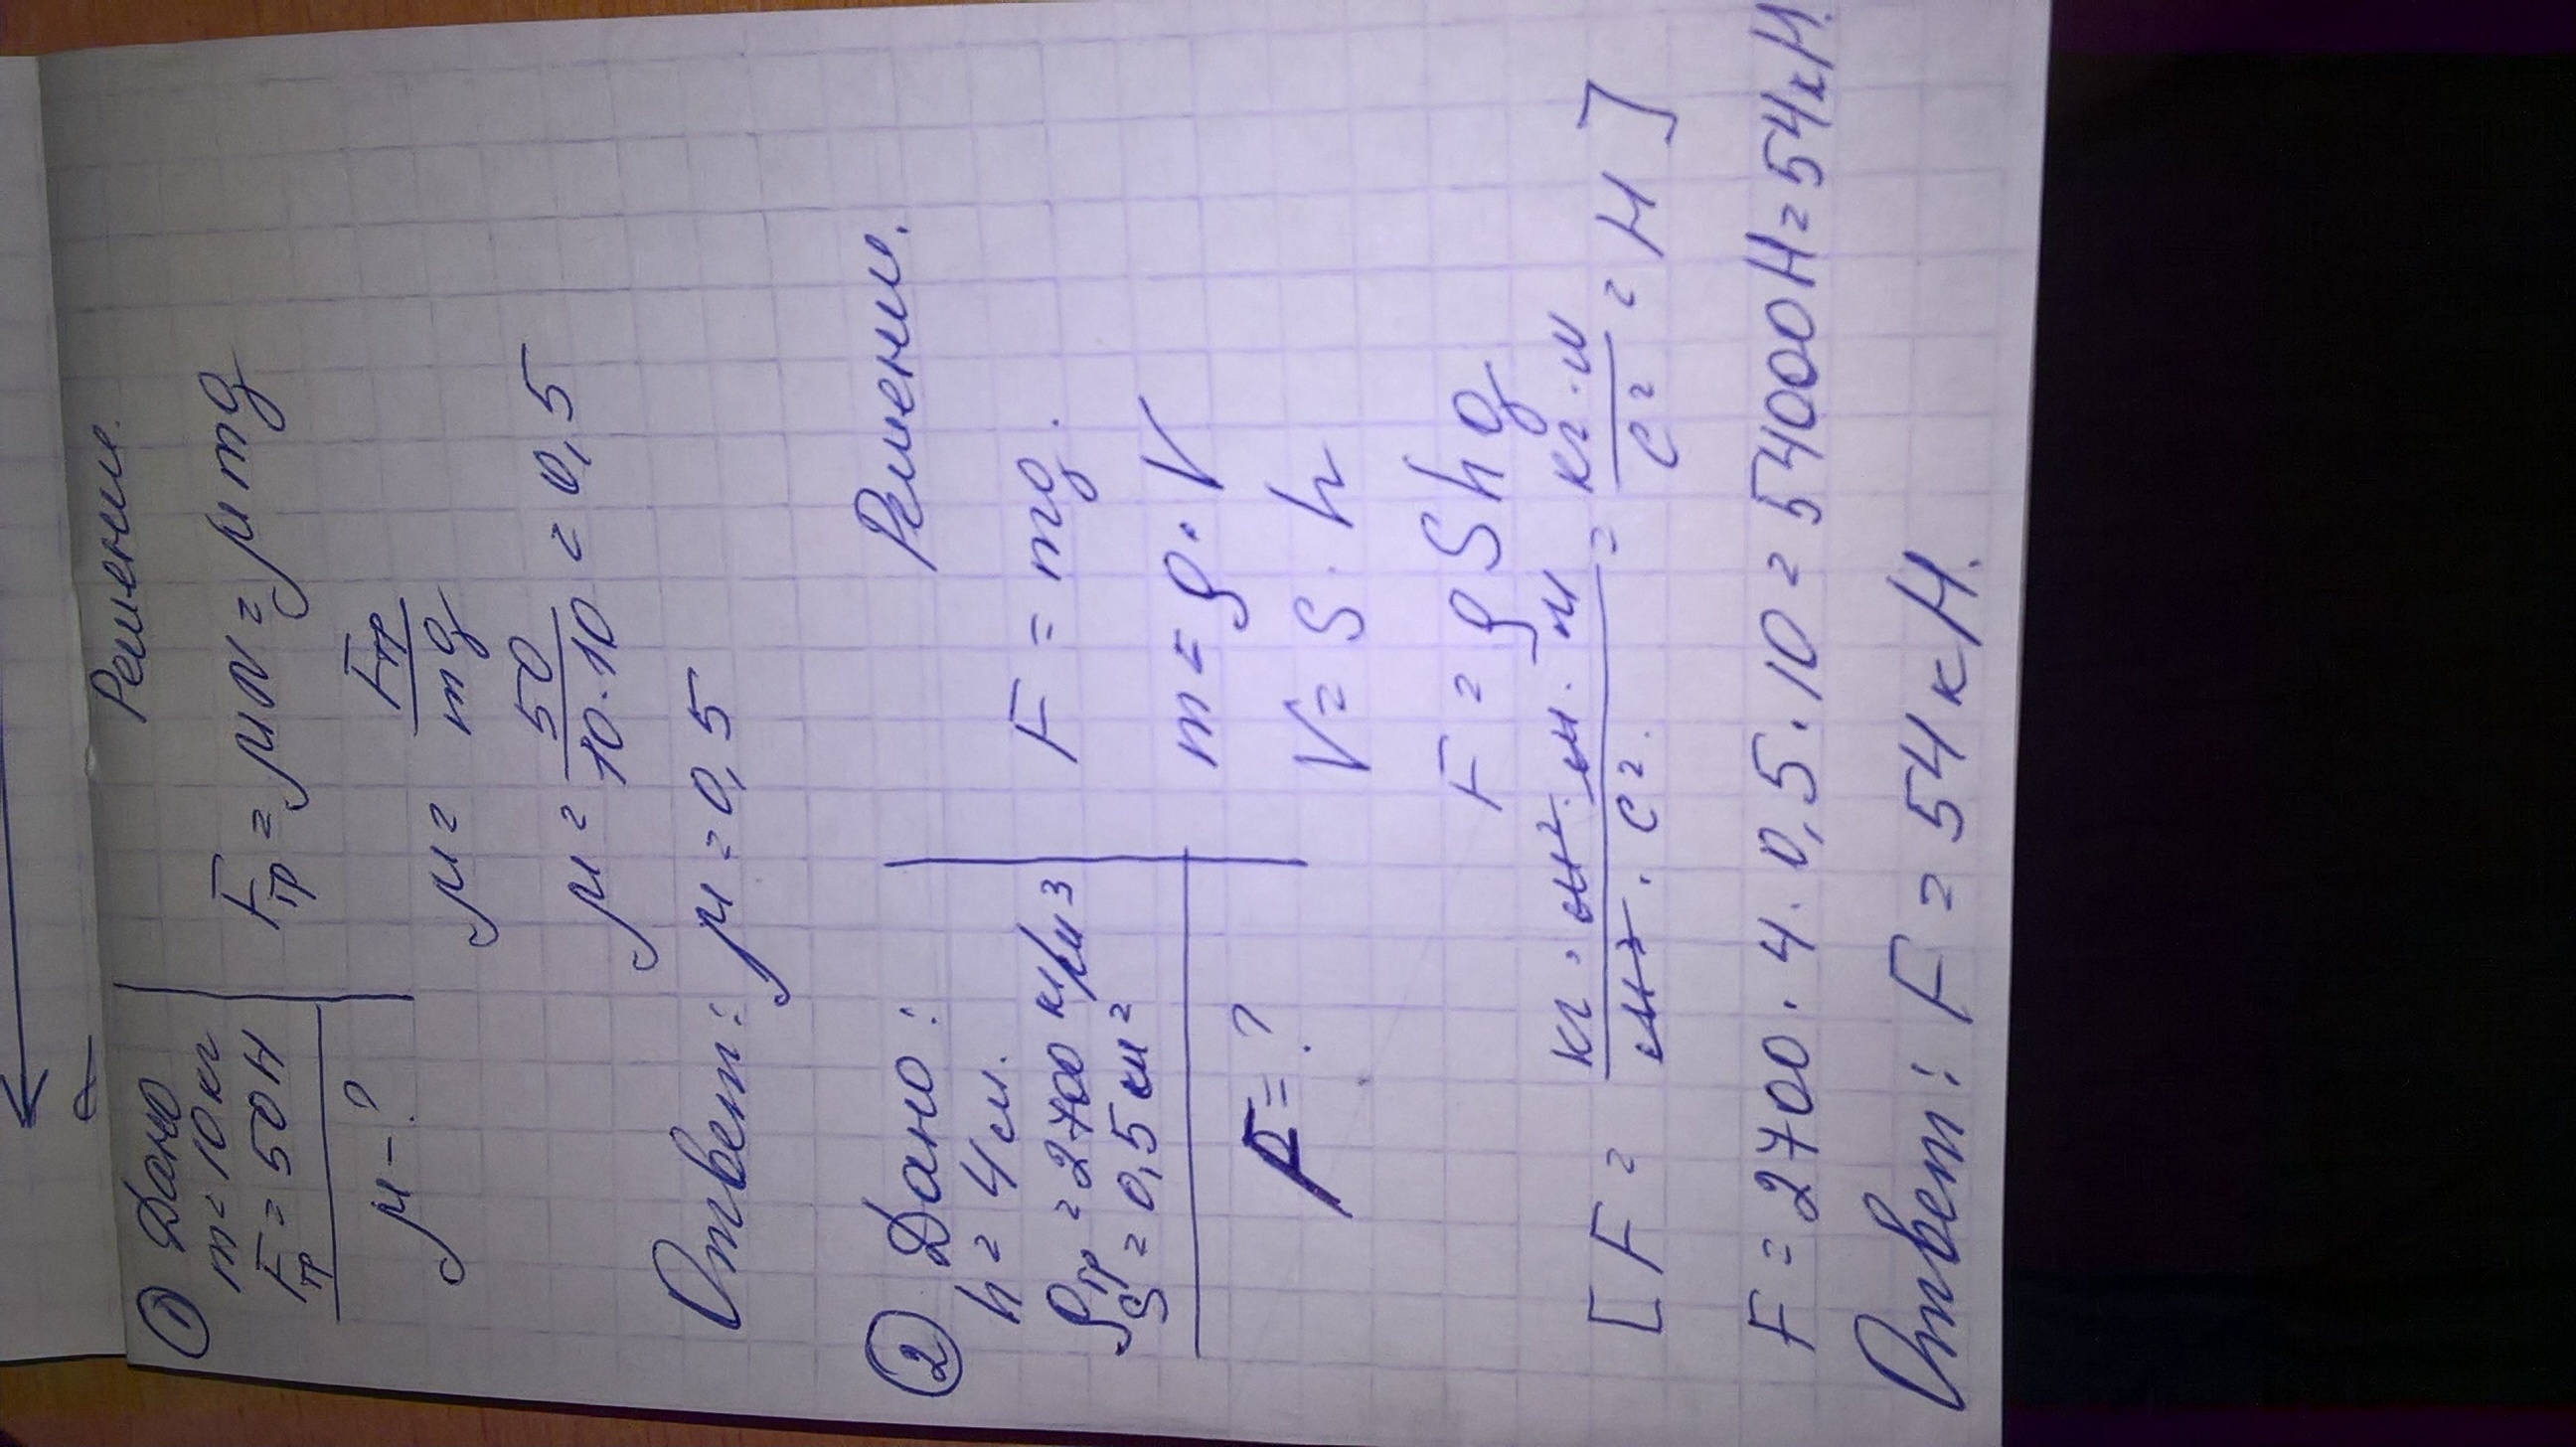 ① Дано
m = 10 кг
Fтр = 50 Н
μ - ?
Решение.
Fтр = μN = μmg
μ = Fтр / mg
μ = 50 / 10·10 = 0,5
Ответ: μ = 0,5
② Дано:
h = 4 м.
ρгр = 2700 кг/м³
S = 0,5 м²
F = ?
Решение.
F = mg.
m = ρ·V
V = S·h
F = ρShg
[F = кг·м²·м·м / м³·с² = кг·м / с² = Н]
F = 2700·4·0,5·10 = 54000Н = 54кН.
Ответ: F = 54 кН.